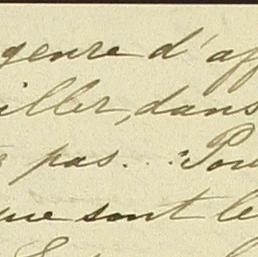 genre d'af
iller, dans
pas. .. Pou
que sont le